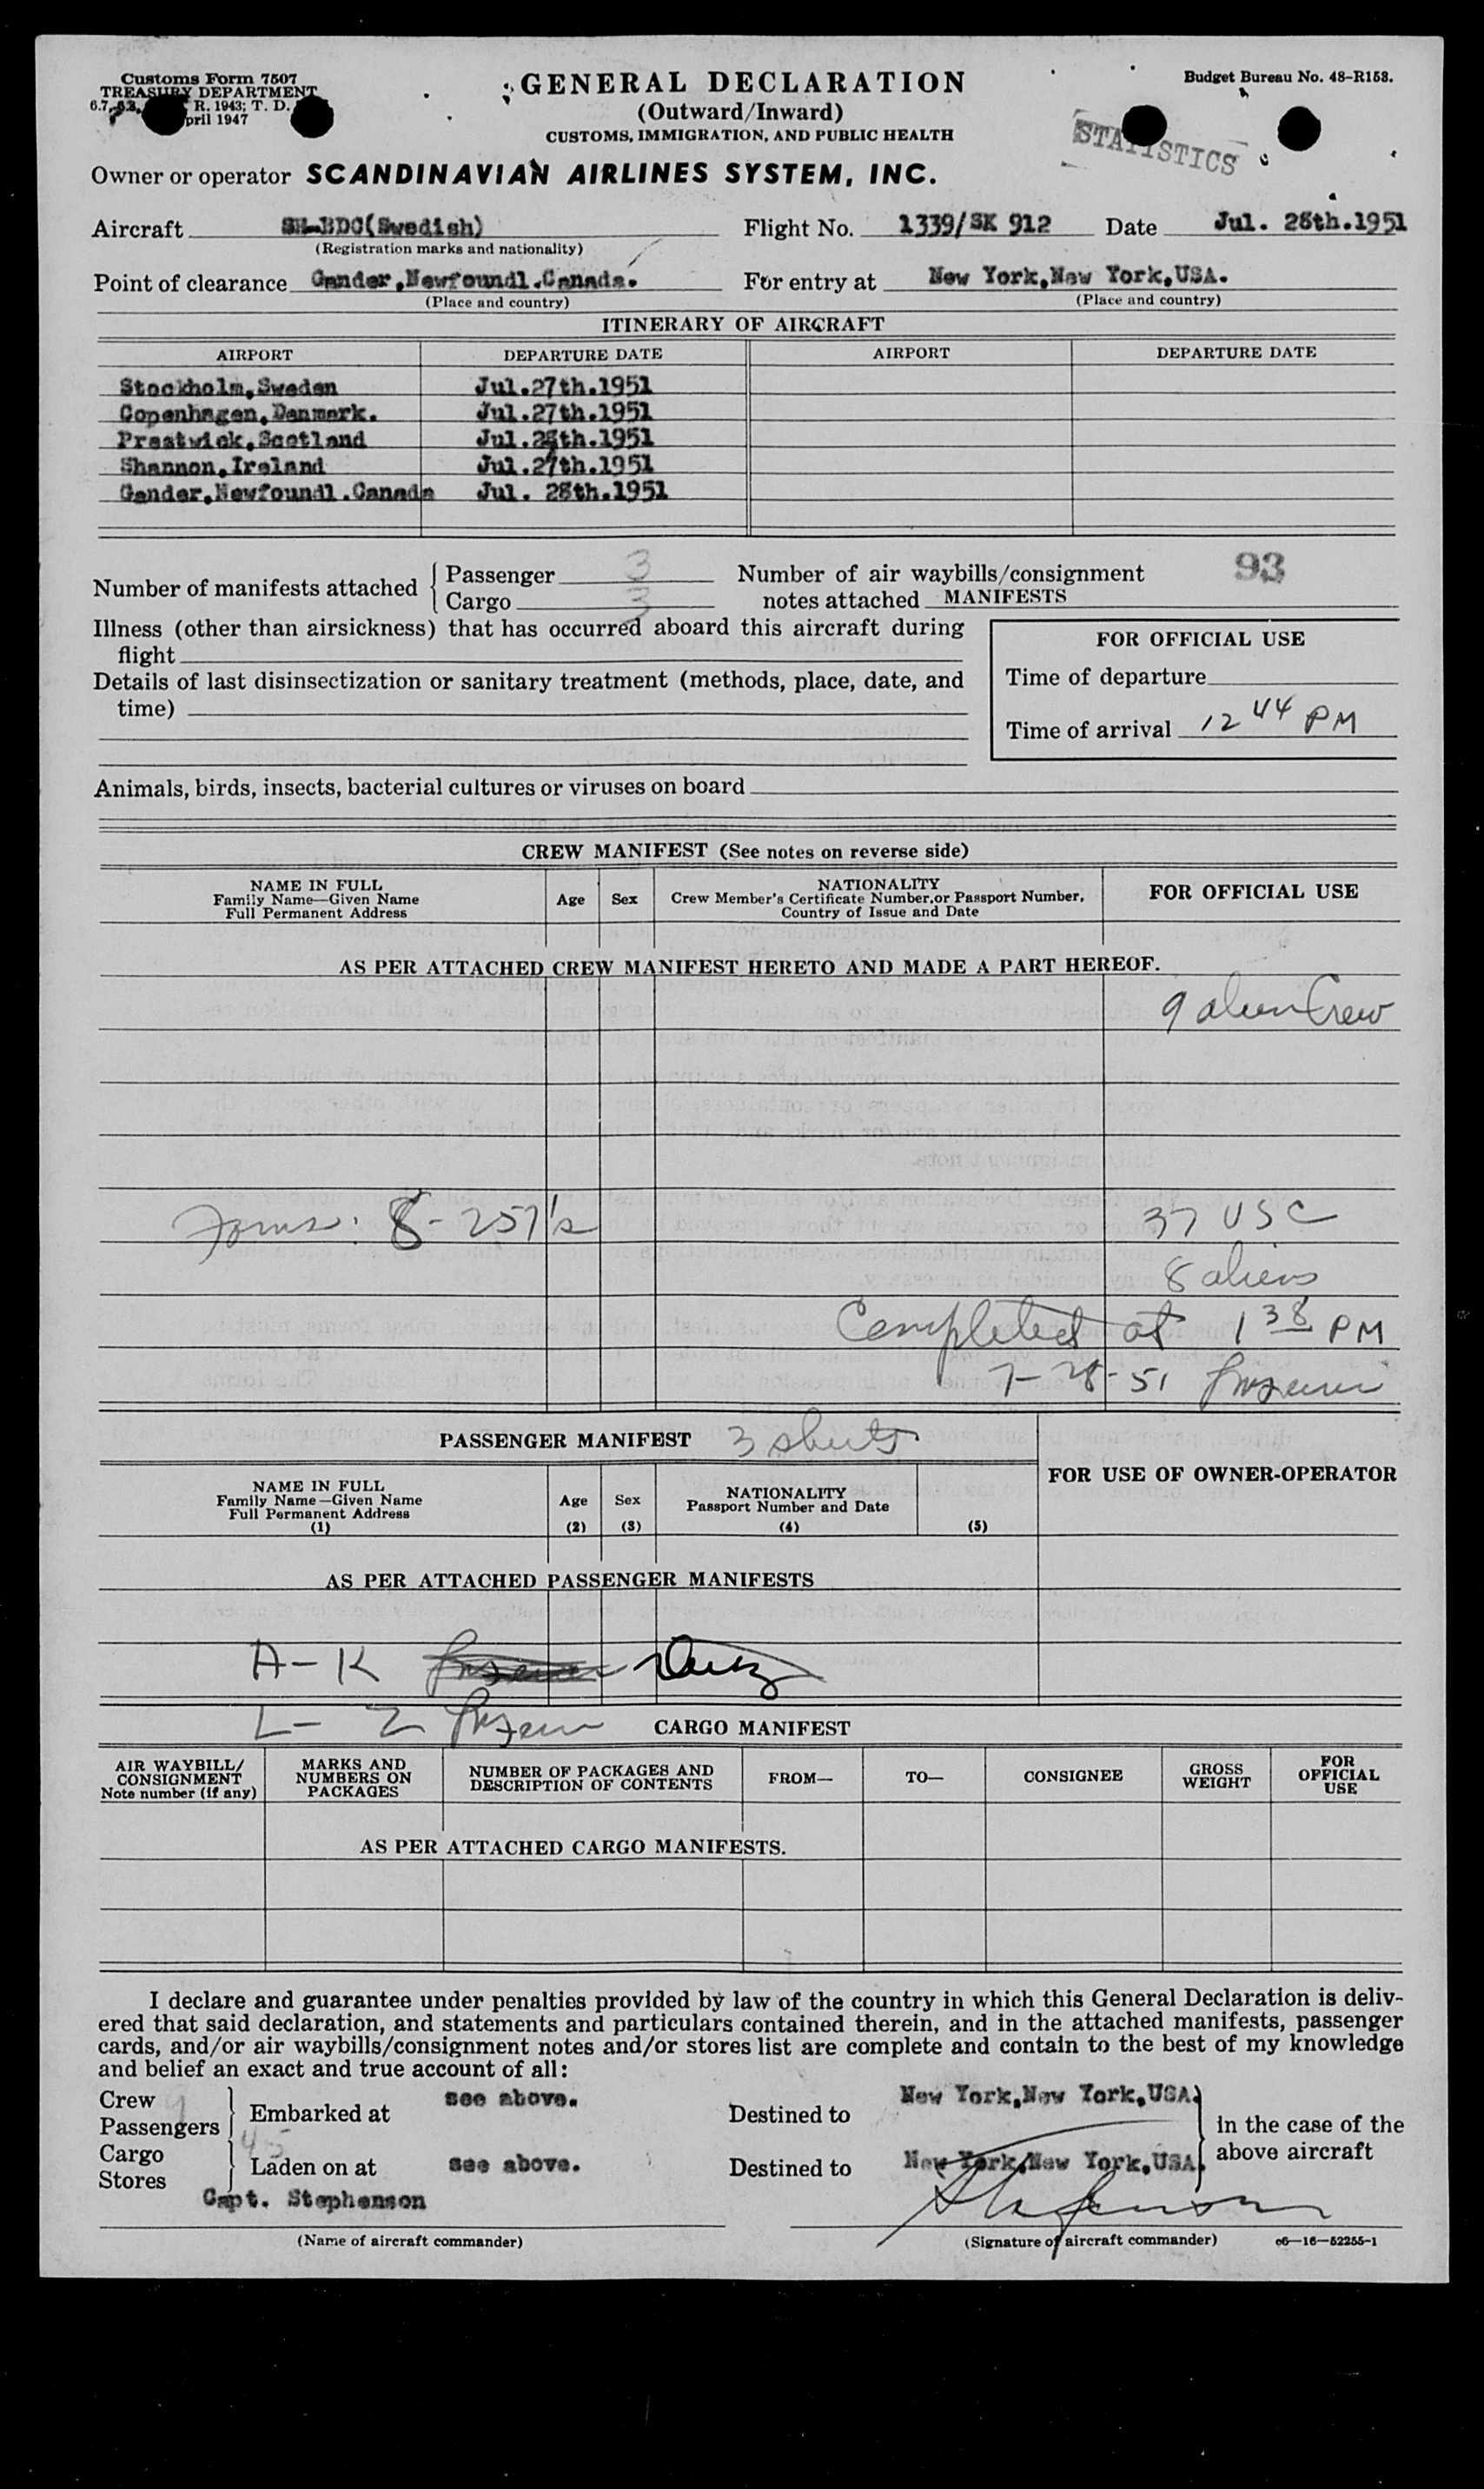 Customs Form 7507
TREASURY DEPARTMENT
R. 1943; T. D.
pril 1947
GENERAL DECLARATION
(Outward/Inward)
CUSTOMS, IMMIGRATION, AND PUBLIC HEALTH
Budget Bureau No. 48-R153.
STATISTICS
Owner or operator SCANDINAVIAN AIRLINES SYSTEM, INC.
Aircraft (Swedish) Flight No. 1339/SK 912 Date Jul. 28th.1951
(Registration marks and nationality)
Point of clearance Gander,Newfoundl.Canada. For entry at New York,New York,USA.
(Place and country) (Place and country)
ITINERARY OF AIRCRAFT
AIRPORT DEPARTURE DATE AIRPORT DEPARTURE DATE
Stockholm,Sweden Jul.27th.1951
Copenhagen,Denmark. Jul.27th.1951
Prestwick,Scotland Jul.28th.1951
Shannon,Ireland Jul.27th.1951
Gander,Newfoundl.Canada Jul. 28th.1951
Number of manifests attached { Passenger 3 Number of air waybills/consignment 93
Cargo 3 notes attached MANIFESTS
Illness (other than airsickness) that has occurred aboard this aircraft during
flight
FOR OFFICIAL USE
Details of last disinsectization or sanitary treatment (methods, place, date, and
time)
Time of departure
Time of arrival 12 44 PM
Animals, birds, insects, bacterial cultures or viruses on board
CREW MANIFEST (See notes on reverse side)
NAME IN FULL
Family Name—Given Name
Full Permanent Address
Age Sex
NATIONALITY
Crew Member's Certificate Number,or Passport Number,
Country of Issue and Date
FOR OFFICIAL USE
AS PER ATTACHED CREW MANIFEST HERETO AND MADE A PART HEREOF.
9 alien Crew
Forms: 8-257's 37 USC
8 aliens
Completed at 1 38 PM
7-28-51
PASSENGER MANIFEST 3 sheets
FOR USE OF OWNER-OPERATOR
NAME IN FULL
Family Name—Given Name
Full Permanent Address
(1)
Age
(2)
Sex
(3)
NATIONALITY
Passport Number and Date
(4)
(5)
AS PER ATTACHED PASSENGER MANIFESTS
A-K
L-Z
CARGO MANIFEST
AIR WAYBILL/
CONSIGNMENT
Note number (if any)
MARKS AND
NUMBERS ON
PACKAGES
NUMBER OF PACKAGES AND
DESCRIPTION OF CONTENTS
FROM—
TO—
CONSIGNEE
GROSS
WEIGHT
FOR
OFFICIAL
USE
AS PER ATTACHED CARGO MANIFESTS.
I declare and guarantee under penalties provided by law of the country in which this General Declaration is deliv-
ered that said declaration, and statements and particulars contained therein, and in the attached manifests, passenger
cards, and/or air waybills/consignment notes and/or stores list are complete and contain to the best of my knowledge
and belief an exact and true account of all:
Crew 9
Passengers 45
Embarked at see above. Destined to New York,New York,USA.
Cargo
Stores
Laden on at see above. Destined to New York,New York,USA.
in the case of the
above aircraft
Capt. Stephenson
(Name of aircraft commander) (Signature of aircraft commander) c6—16—52255-1